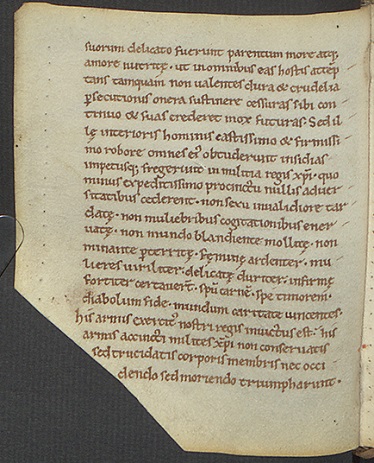 suorum delicato fuerunt parentum more atq;
amore nutritę. ut in omnibus eas hostis attēp
tans tamquam non ualentes dura & crudelia
ꝑsecutionis onera sustinere cessuras sibi con
tinuo & suas crederet mox futuras. Sed il
lę interioris hominis castissimo & firmissi
mo robore omnes ei' obtuderunt insidias
impetusq; fregerunt in militia regis xp̄i. quo
minus expeditissimo procinctu nullis aduer
sitatibus cederent. non sexu inualidiore tar
datę. non muliebribus cogitationibus ener
uatę. non mundo blandiente mollitę. non
minante ꝑterritę. Feminę ardenter. mu
lieres uiriliter. delicatę duriter. infirmę
fortiter certauert̄. spū carnē. spe timorem.
diabolum fide. mundum caritate uincentes.
his armis exercit' nostri regis inuictus est. his
armis accincti milites xp̄i non conseruatis
sed trucidatis corporis membris nec occi
dendo sed moriendo triumpharunt.